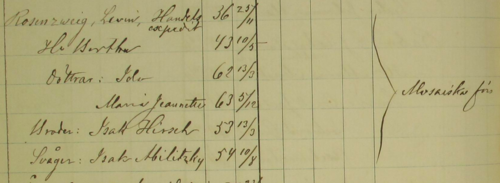 Rosenzweig, Lewin, Handels 36 25/11
expedit
H. Bertha 43 10/5
Döttrar: Ida 62 13/2
Maria Jeanette 63 5/12 Mosaiska förs
Broder: Isak Hirsch 53 13/3
Svåger: Isak Militzky 54 10/8